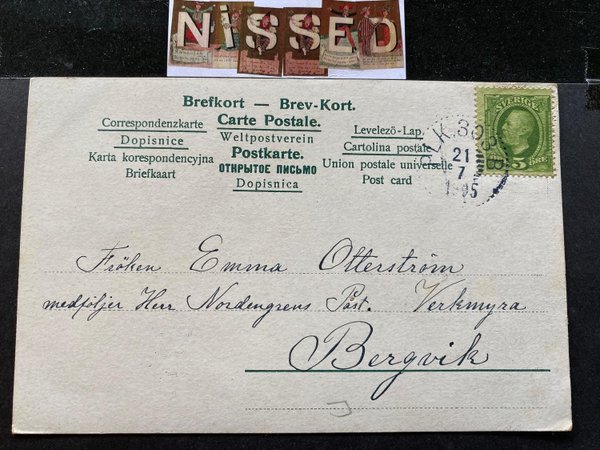 NiSSED
Brefkort — Brev-Kort.
Correspondenzkarte Carte Postale. Levelező-Lap.
Dopisnice Weltpostverein Cartolina postale
Karta korespondencyjna Postkarte. Union postale universelle
Briefkaart ОТКРЫТОЕ ПИСЬМО Post card
Dopisnica
SVERIGE
5 ÖRE
21
7
1905
Fröken Emma Otterström
medföljer Herr Nordengrens Post. Verkmyra
Bergvik